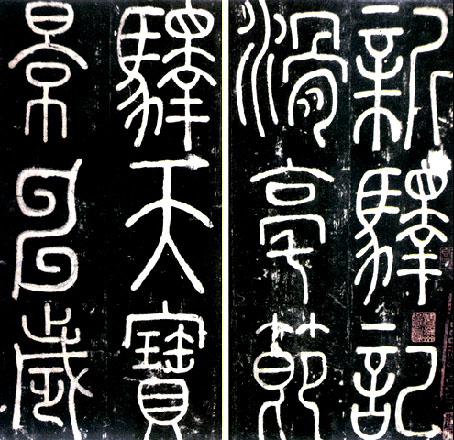 新驛記
滑亭節
驛天寶
景申歲